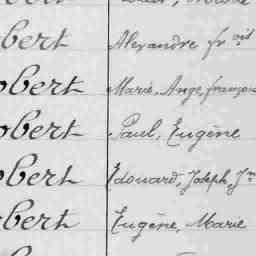 obert Alexandre frois
obert Marie, Ange, françoi
obert Paul, Eugène
obert Edouard, Joseph, Jn
obert Eugène, Marie